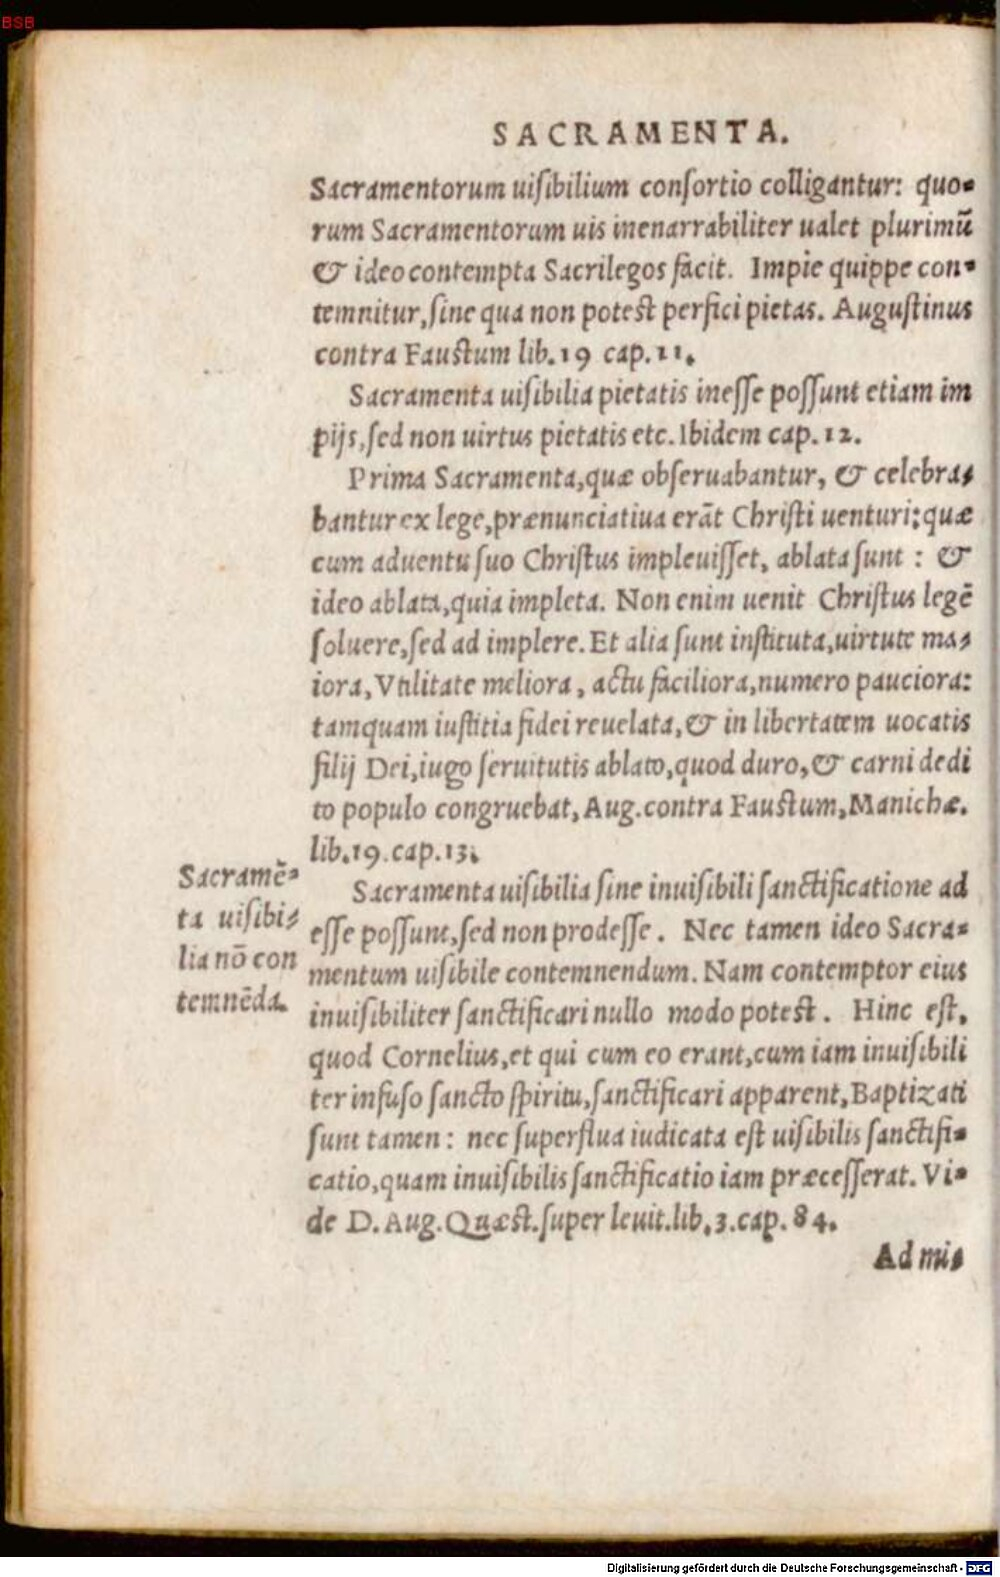 BSB
SACRAMENTA.
Sacramentorum uisibilium consortio colligantur: quo-
rum Sacramentorum uis inenarrabiliter ualet plurimũ
& ideo contempta Sacrilegos facit. Impie quippe con-
temnitur, sine qua non potest perfici pietas. Augustinus
contra Faustum lib. 19 cap. 11.
Sacramenta uisibilia pietatis inesse possunt etiam im
pijs, sed non uirtus pietatis etc. Ibidem cap. 12.
Prima Sacramenta, quæ obseruabantur, & celebra-
bantur ex lege, prænunciatiua erãt Christi uenturi: quæ
cum aduentu suo Christus impleuisset, ablata sunt : &
ideo ablata, quia impleta. Non enim uenit Christus legẽ
soluere, sed ad implere. Et alia sunt instituta, uirtute ma-
iora, Vtilitate meliora, actu faciliora, numero pauciora:
tamquam iustitia fidei reuelata, & in libertatem uocatis
filij Dei, iugo seruitutis ablato, quod duro, & carni dedi
to populo congruebat, Aug. contra Faustum, Manichæ.
lib. 19. cap. 13.
Sacramẽ-
ta uisibi-
lia nõ con
temnẽda.
Sacramenta uisibilia sine inuisibili sanctificatione ad
esse possunt, sed non prodesse. Nec tamen ideo Sacra-
mentum uisibile contemnendum. Nam contemptor eius
inuisibiliter sanctificari nullo modo potest. Hinc est,
quod Cornelius, et qui cum eo erant, cum iam inuisibili
ter infuso sancto spiritu, sanctificari apparent, Baptizati
sunt tamen: nec superflua iudicata est uisibilis sanctifi-
catio, quam inuisibilis sanctificatio iam præcesserat. Vi-
de D. Aug. Quæst. super leuit. lib. 3. cap. 84.
Ad mi-
Digitalisierung gefördert durch die Deutsche Forschungsgemeinschaft - DFG